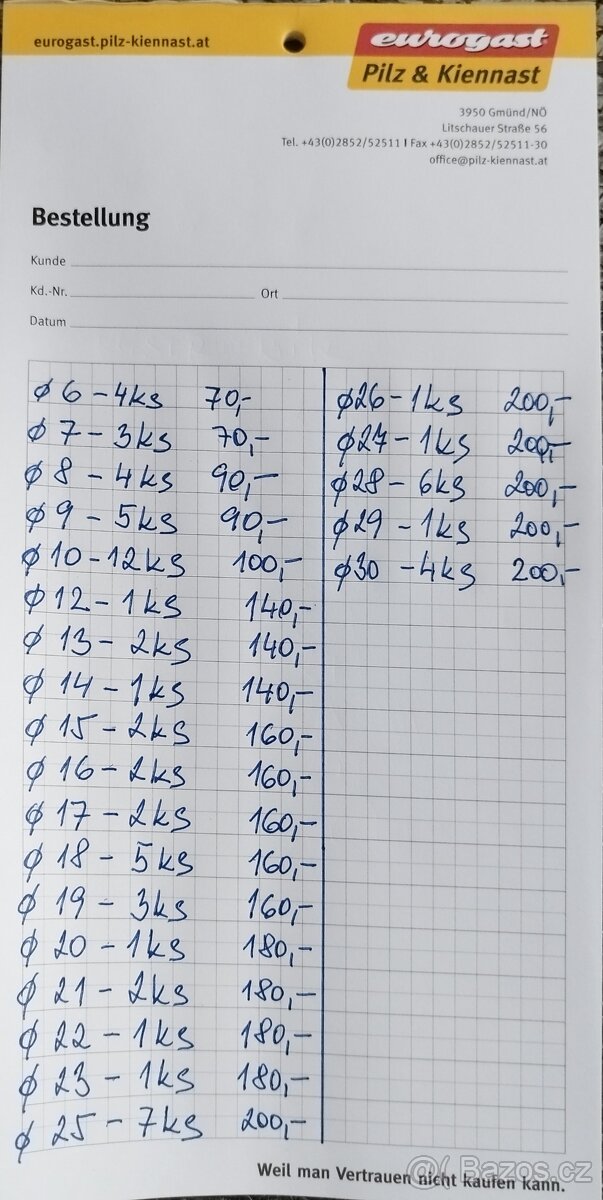 eurogast.pilz-kiennast.at
eurogast
Pilz & Kiennast
3950 Gmünd/NÖ
Litschauer Straße 56
Tel. +43(0)2852/52511 I Fax +43(0)2852/52511-30
office@pilz-kiennast.at
Bestellung
Kunde
Kd.-Nr. Ort
Datum
ϕ 6 - 4ks 70,-
ϕ 7 - 3ks 70,-
ϕ 8 - 4ks 90,-
ϕ 9 - 5ks 90,-
ϕ 10 - 12ks 100,-
ϕ 12 - 1ks 140,-
ϕ 13 - 2ks 140,-
ϕ 14 - 1ks 140,-
ϕ 15 - 2ks 160,-
ϕ 16 - 2ks 160,-
ϕ 17 - 2ks 160,-
ϕ 18 - 5ks 160,-
ϕ 19 - 3ks 160,-
ϕ 20 - 1ks 180,-
ϕ 21 - 2ks 180,-
ϕ 22 - 1ks 180,-
ϕ 23 - 1ks 180,-
ϕ 25 - 7ks 200,-
ϕ 26 - 1ks 200,-
ϕ 27 - 1ks 200,-
ϕ 28 - 6ks 200,-
ϕ 29 - 1ks 200,-
ϕ 30 - 4ks 200,-
Weil man Vertrauen nicht kaufen kann.
Bazos.cz